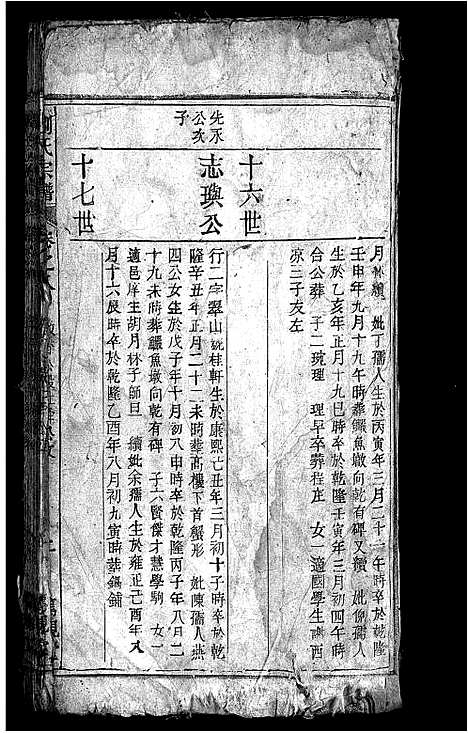 十六世
月林績 妣丁孺人生於丙寅年三月二十一午時卒於乾隆
壬申年九月十九午時葬鱖魚墩向乾有碑又績 妣倪孺人
生於乙亥年正月十九巳時卒於乾隆壬寅年三月初四午時
合公葬 子二琬理 理早卒葬程庄 女一適國學生陳西
凉三子友左
先承
公次
子
志璵公
行二字翠山號桂軒生於康熙丁丑年三月初十子時卒於乾
隆辛丑年正月二十二未時葬高樓下首蟹形 妣陳孺人燕
四公女生於戊子年十月初八申時卒於乾隆丙子年八月二
十九未時葬鱖魚墩向乾有碑 子六賢傑才慧學駒 女一
適邑庠生胡月林子師旦 續妣余孺人生於雍正己酉年八
月十六辰時卒於乾隆乙酉年八月初九寅時葬錫鋪
十七世
劉氏宗譜